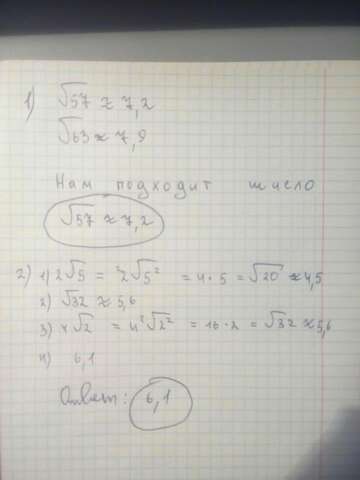 1) √57 ≈ 7,2
√63 ≈ 7,9
Нам подходит число
√57 ≈ 7,2
2) 1) 2√5 = ²2√5² = 4·5 = √20 ≈ 4,5
2) √32 ≈ 5,6
3) 4√2 = 4²√2² = 16·2 = √32 ≈ 5,6
4) 6,1
Ответ: 6,1